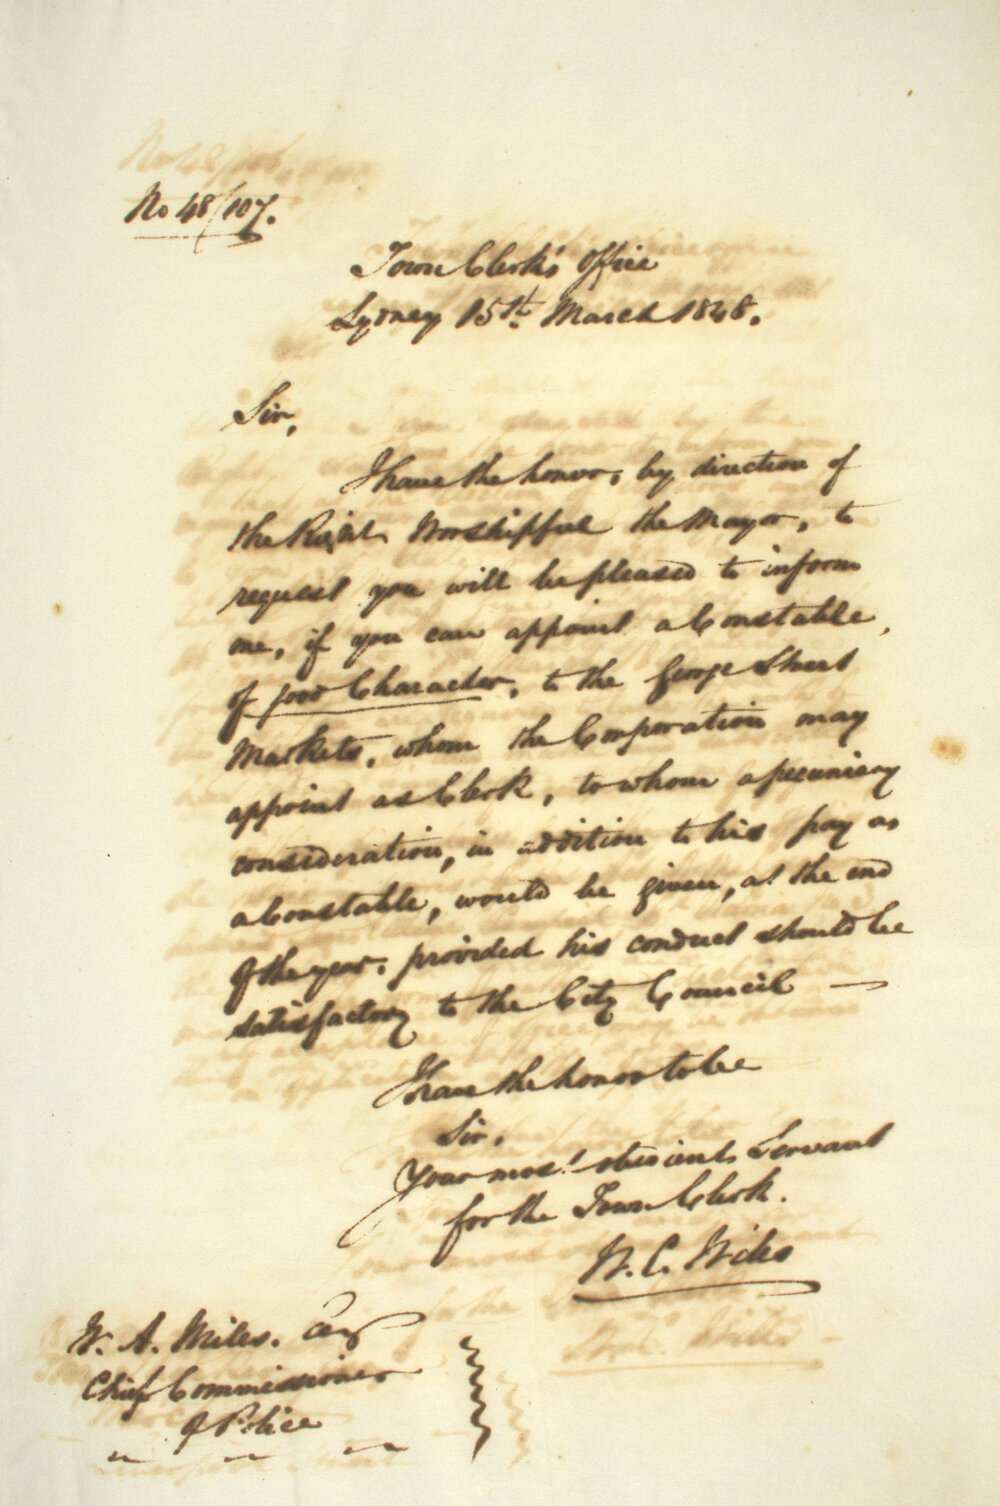 No 48/107.
Town Clerk's Office
Sydney 15th. March 1848.
Sir,
I have the honor, by direction of
the Right Worshipful the Mayor, to
request you will be pleased to inform
me, if you can appoint a Constable,
of good Character, to the George Street
Markets, whom the Corporation may
appoint as Clerk, to whom a pecuniary
consideration, in addition to his pay as
a Constable, would be given, at the end
of the year, provided his conduct should be
satisfactory to the City Council —
I have the honor to be
Sir,
Your most obedient Servant
for the Town Clerk.
W. C. Wills
W. A. Miles. Esq
Chief Commissioner
of Police